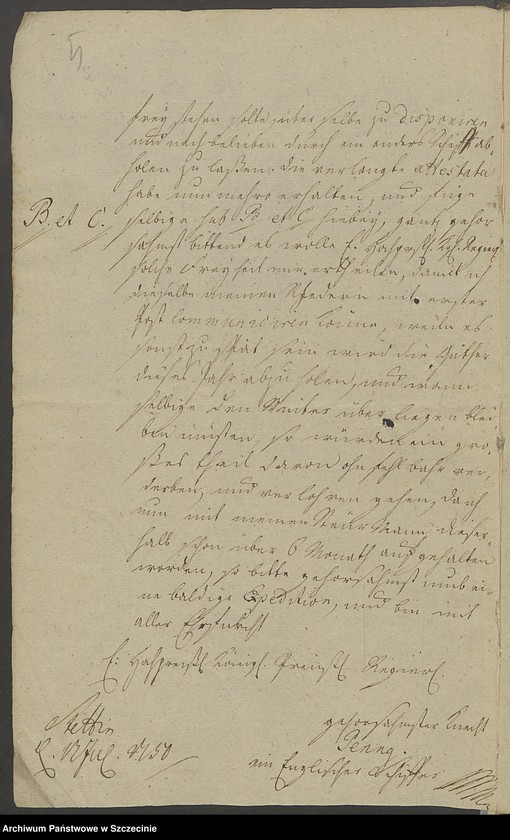 5
freÿ stehen solte, über selbe zu disponiren
und nach belieben durch ein anders Schiff ab,
holen zu laßen. die verlangte attestata
habe nun mehro erhalten, und füge
B. et C. selbige sub B et C hiebeÿ, gantz gehor
sahmst bittend es wolle E. Hochpreißl. Kgl. Regierung
solche Freÿheit mir ertheilen, damit ich
dieselbe meinen Rhedern mit erster
Post communiciren könne, weilen es
sonst zu spät sein wird die Güther
dieses Jahr abzuholen, und wann
selbige den Winter über liegen blei
ben müßen, so würden ein gro,
ßes theil davon ohnfehlbahr ver,
derben, und verlohren gehen, dach
nun mit meinen Steür Mann dieser
halb schon über 6 Monath aufgehalten
worden, so bitte gehorsahmst umb ei,
ne baldige Expedition, und bin mit
aller Ehrfurcht
E: Hochpreißl. Königl. Preußl. Regierl.
Stettin
gehorsahmster Knecht
Penny
ein Englischer Schiffer
Archiwum Państwowe w Szczecinie